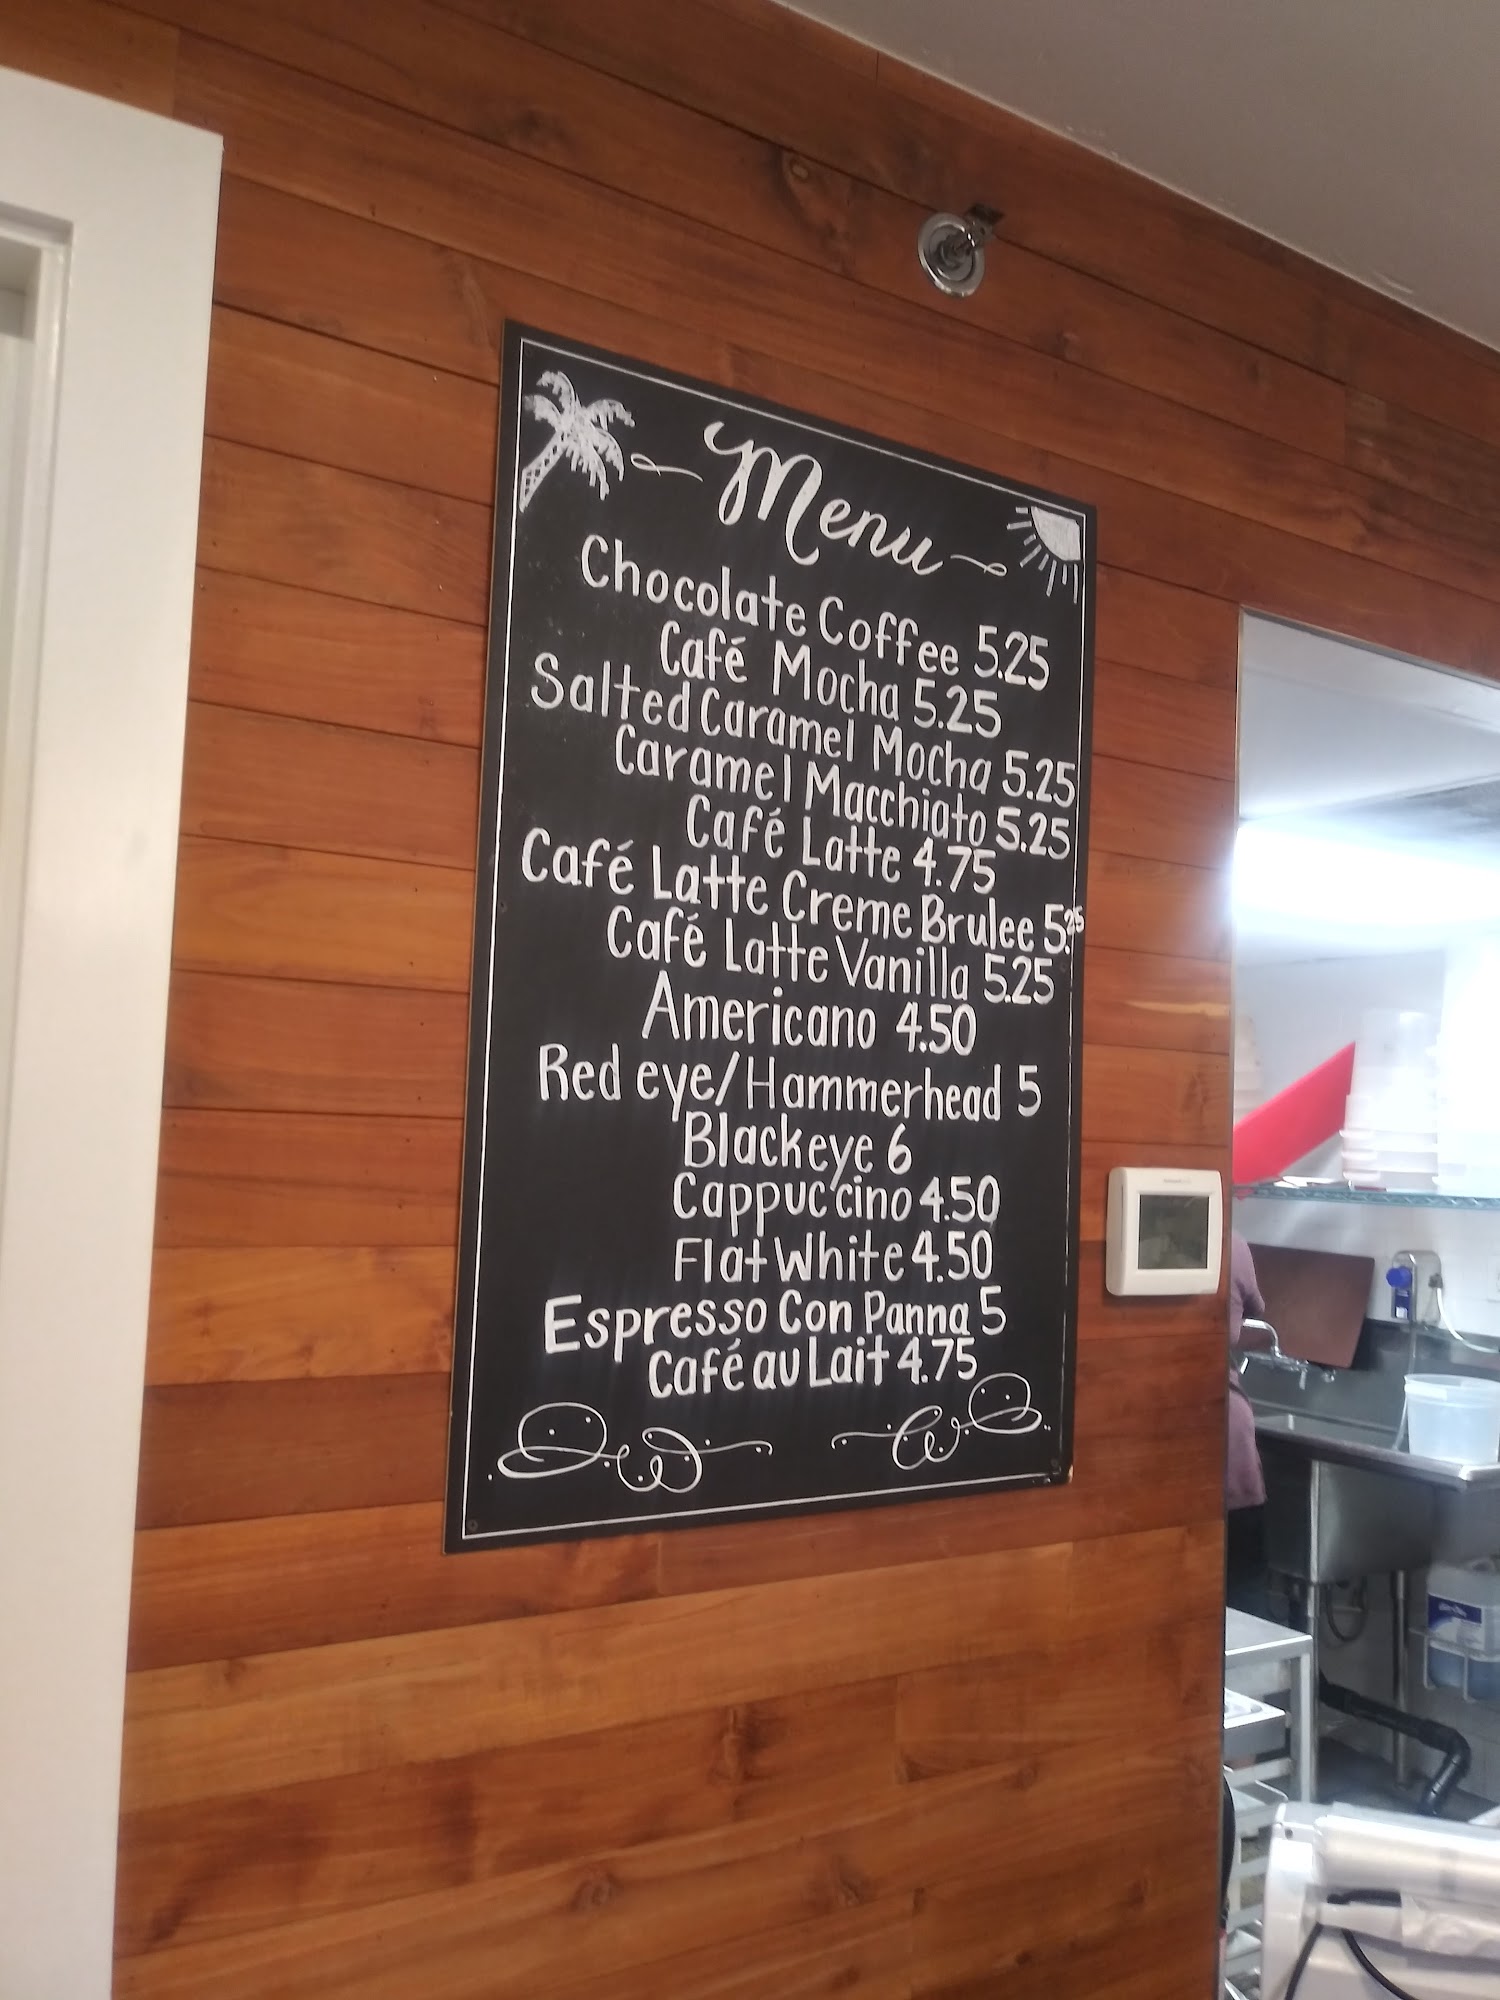 Menu
Chocolate Coffee 5.25
Café Mocha 5.25
Salted Caramel Mocha 5.25
Caramel Macchiato 5.25
Café Latte 4.75
Café Latte Creme Brulee 5.25
Café Latte Vanilla 5.25
Americano 4.50
Red eye/Hammerhead 5
Blackeye 6
Cappuccino 4.50
Flat White 4.50
Espresso Con Panna 5
Café au Lait 4.75